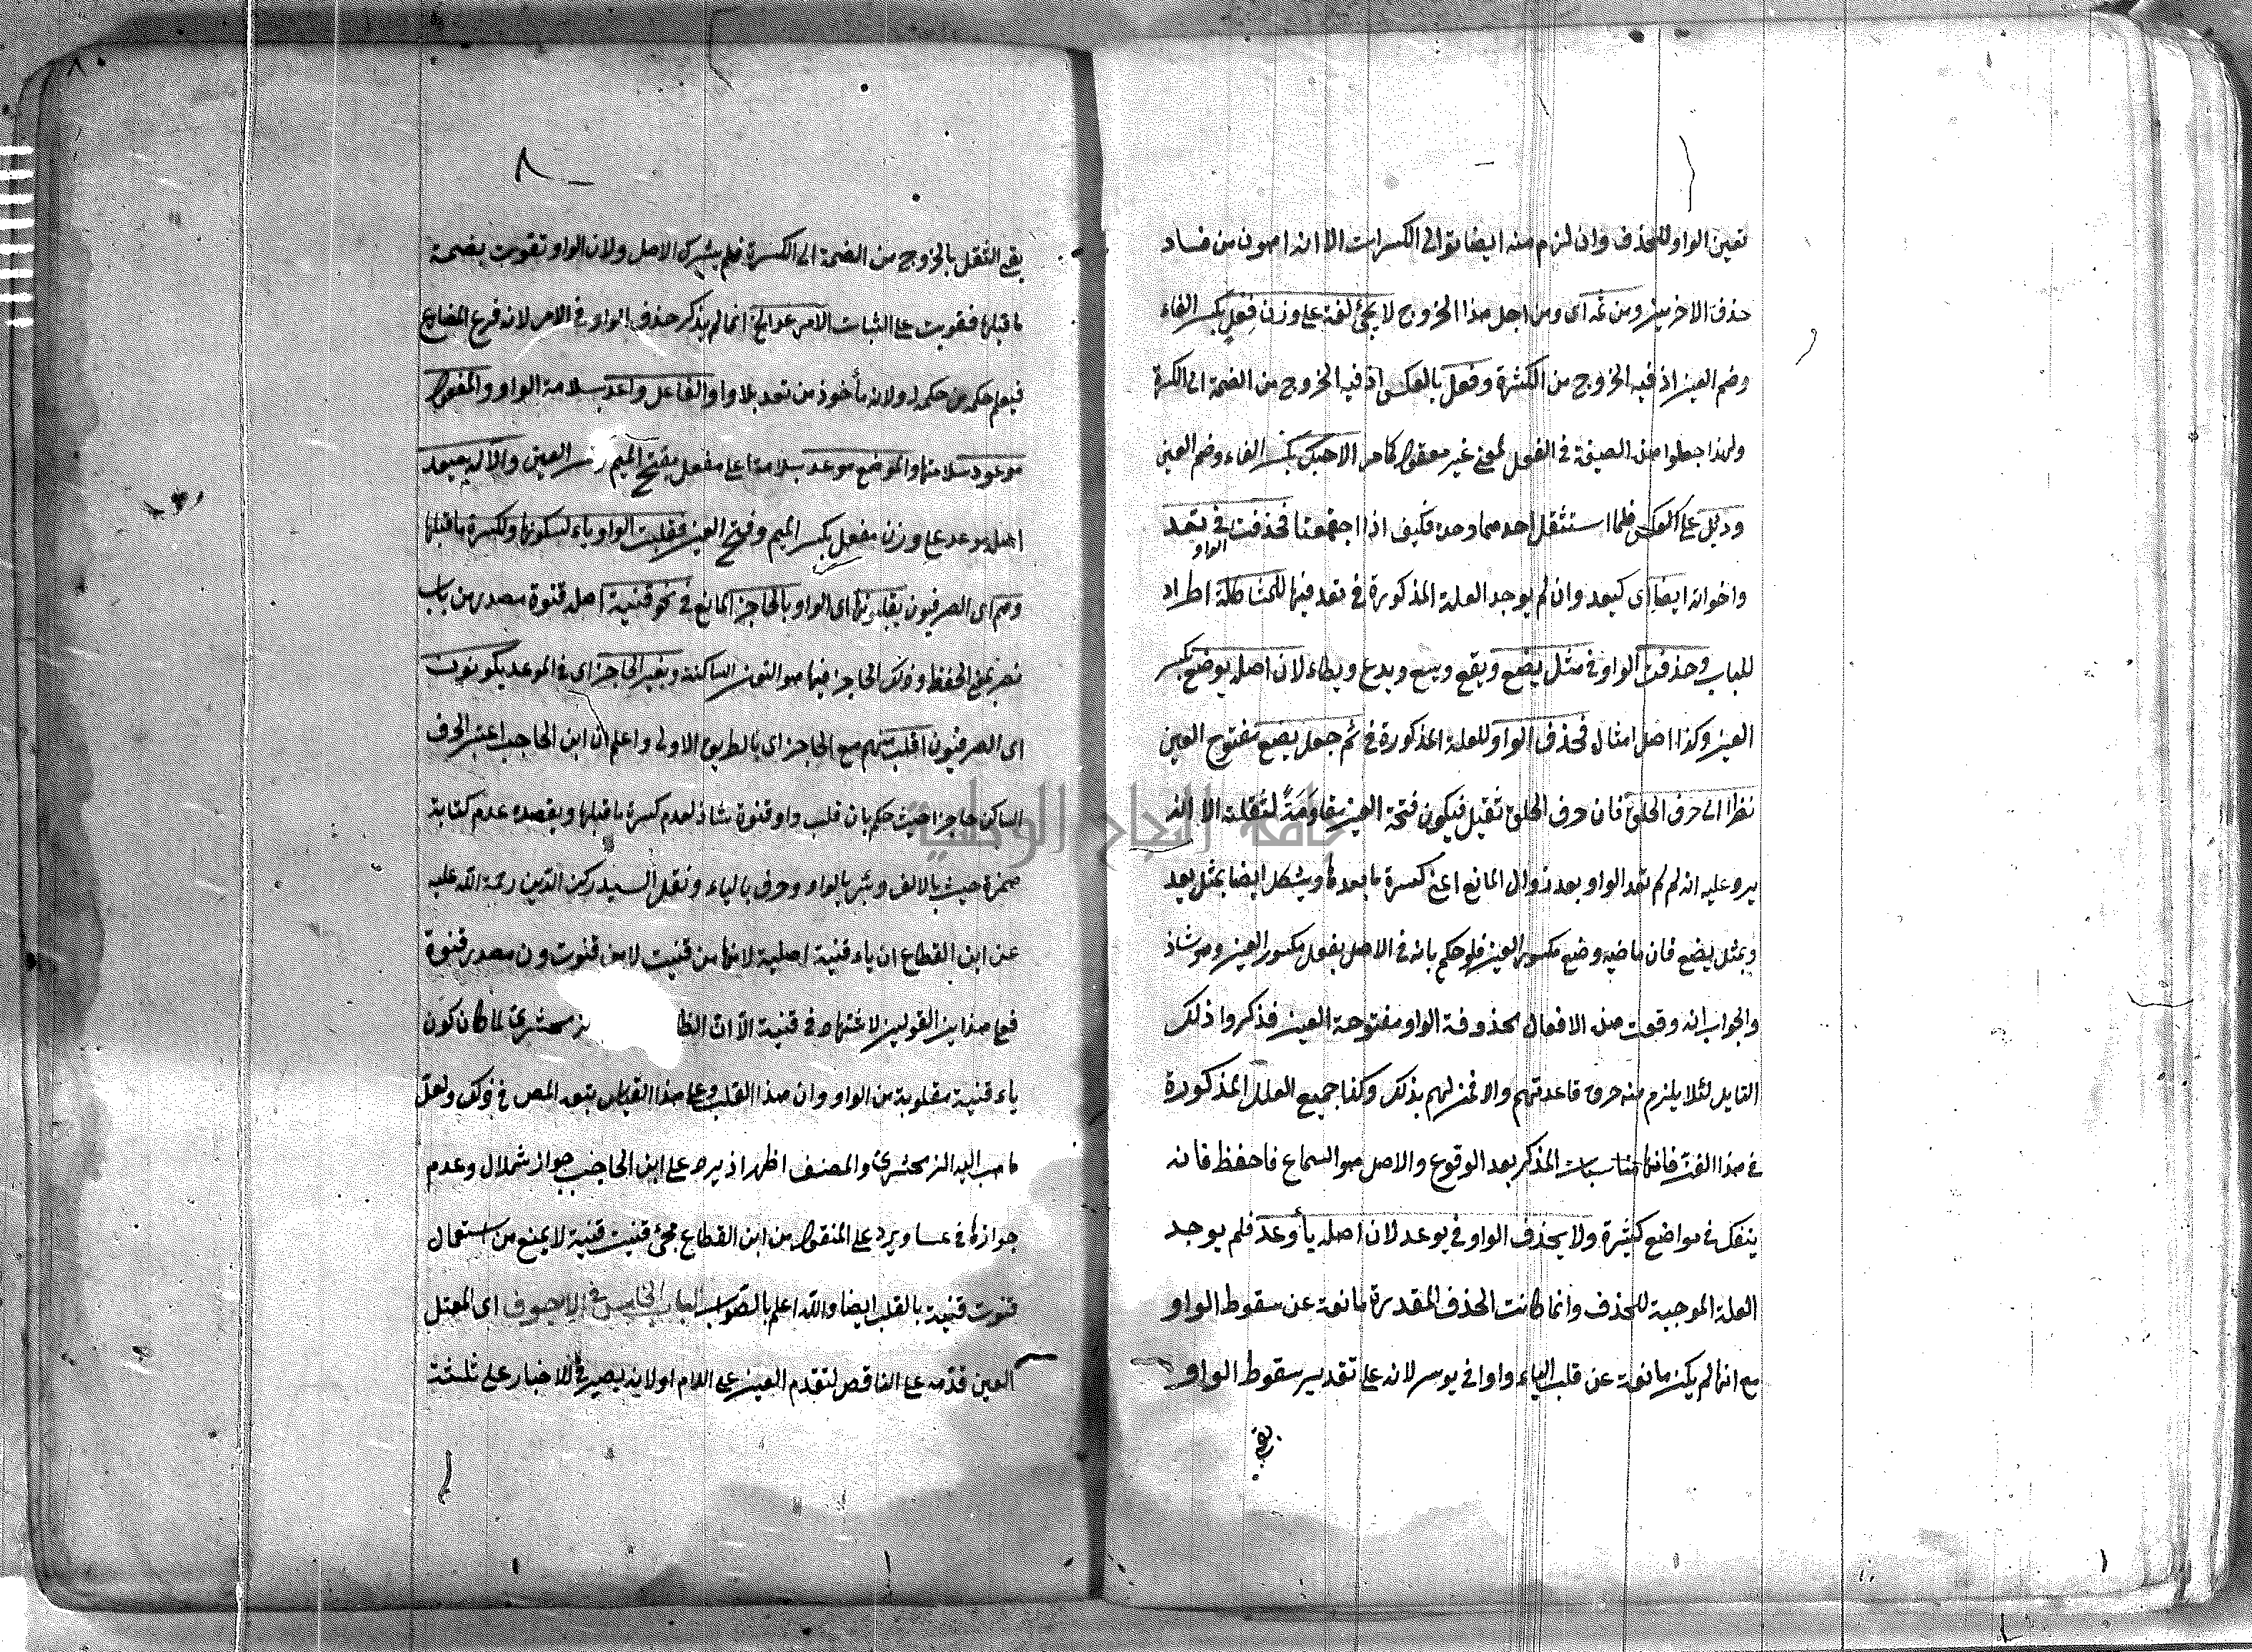 تعين الواو للحذف وان لزم منه ايضا توالى الكسرات الا انه اهون من فساد
حذف الاخرين ومن ثمه اى ومن اجل هذا الخروج لا يجئ لغة على وزن فعل بكسر الفاء
وضم العين اذ فيه الخروج من الكسرة وفعل بالعكس اذ فيه الخروج من الضمة الى الكسرة
ولهذا جعلوا هذه الصيغة في الفعل لمعنى غير معقول كما مر الا حبك بكسر الفاء وضم العين
ودئل على العكس فلما استثقل احدهما وحده فكيف اذا اجتمعتا فحذفت الواو في تعد
واخواته ايضا اى كيعد وان لم يوجد العلة المذكورة في تعد فيها للمشاكلة اطراد
للباب وحذفت الواو في مثل يضع ويقع ويسع ويدع ويطاء لان اصله يوضع بكسر
العين وكذا اصل امثاله فحذف الواو للعلة المذكورة في ثم جعل يضع مفتوح العين
نظرا الى حرف الحلق فان حرف الحلق ثقيل فيكون فتحة العين مقاومة لثقلته الا انه
يرد عليه انه لم لم تعد الواو بعد زوال المانع اعنى كسرة ما بعدها ويشكل ايضا بمثل يعد
وبمثل يضع فان ماضيه وضع مكسور العين فلو حكم بانه في الاصل يفعل مكسور العين وهو شاذ
والجواب انه وقعت هذه الافعال محذوفة الواو مفتوحة العين فذكروا ذلك
التايل لئلا يلزم منه خرق قاعدتهم والا فمن لهم بذلك وكذا جميع العلل المذكورة
في هذا الفن فانها مناسبات المذكر بعد الوقوع والاصل هو السماع فاحفظ فانه
ينفعك في مواضع كثيرة ولا يحذف الواو في يوعد لان اصله يأوعد فلم يوجد
العلة الموجبة للحذف وانما كانت الحذف المقدرة مانعة عن سقوط الواو
مع انها لم يكن مانعة عن قلب الياء واوا في يوسر لانه على تقدير سقوط الواو
بقى
٨
بقى الثقل بالخروج من الضمة الى الكسرة فلم يترك الاصل ولان الواو تقوت بضمة
ما قبلها فقويت على الثبات الامر عد الخ انما لم يذكر حذف الواو في الامر لانه فرع المضارع
فيعلم حكمه من حكمه او لانه مأخوذ من تعد بلا واو الفاعل واعد بسلامة الواو والمفعول
موعود بسلامتها والموضع موعد بسلامتها على مفعل بفتح الميم العين والآلة ميعد
اصله موعد على وزن مفعل بكسر الميم وفتح العين فقلبت الواو ياء لسكونها ولكسرة ما قبلها
وهم اى الصرفيون يقلبونها اى الواو بالحاجز المانع في نحو قنية اصله قنوة مصدر من باب
نصر بمعنى الحفظ وذلك الحاجز فيها هو النون الساكنة وبغير الحاجز اى في الموعد يكونون
اى الصرفيون اقلب منهم مع الحاجز اى بالطريق الاولى واعلم ان ابن الحاجب اعتبر الحرف
الساكن حاجزا حيث حكم بان قلب واو قنوة شاذ لعدم كسرة ما قبلها ويقصده عدم كتابة
همزة خبث بالالف وبئر بالواو وحرف بالياء ونقل السيد ركن الدين رحمة الله عليه
عن ابن القطاع ان ياء قنية اصلية لانها من قنيت لا من قنوت ون مصدر قنوة
فعلى هذا بين القولين لاشتهاء في قنية الا ان الظا زمخشرى لما كان كون
ياء قنية مقلوبة من الواو وان هذا القلب وعلى هذا القياس تبعه المص في ذلك ولعل
ما ذهب اليه الزمخشرى والمصنف اظهر اذ يرد على ابن الحاجب جواز شملال وعدم
جوازها في عسا ويرد على المنقول من ابن القطاع مجئ قنيت قنية لا يمنع من استعمال
قنوت قنية بالقلب ايضا والله اعلم بالصواب الباب الخامس في الاجوف اى المعتل
العين قدمه على الناقص لتقدم العين على اللام او لانه يصير في الاخبار على ثلثة
جامعة النجاح الوطنية